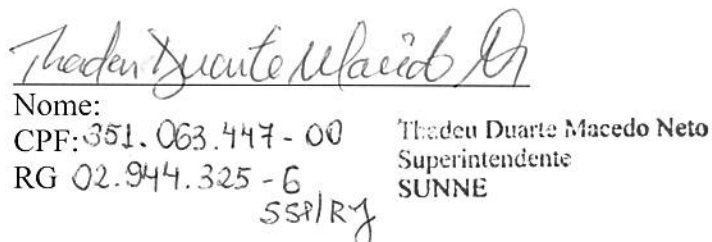 Thadeu Duarte Macedo N
Nome:
CPF: 351.063.447-00
RG 02.944.325-6
SSP/RJ
Thadeu Duarte Macedo Neto
Superintendente
SUNNE